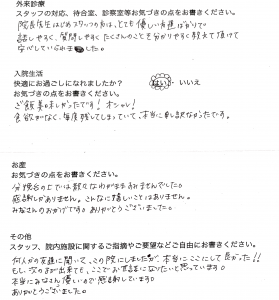 外来診療
スタッフの対応、待合室、診察室等お気づきの点をお書きください。
院長先生はじめスタッフの方は、とても優しい方達ばかりで
話しやすく、質問しやすく たくさんのことを分かりやすく教えて頂けて
安心していられました。
入院生活
快適にお過ごしになれましたか？ はい ・ いいえ
お気づきの点をお書きください。
ご飯美味しかったです！オシャレ！
食欲がなく、毎度残してしまっていて、本当に申し訳なかったです。
お産
お気づきの点をお書きください。
分娩台の上では数えなわがままみませんでした。
感謝しかありません。こんなに嬉しいことはありません。
みなさんのおかげです。ありがとうございました。
その他
スタッフ、院内施設に関するご指摘やご要望などご自由にお書きください。
何人かの友達に聞いて、この院にしましたが、本当にここにして良かった！！
もし、次の子が出来ても、ここでお世話になりたいと思っています。
本当にみなさん優しいので感謝しています。
ありがとうございました。